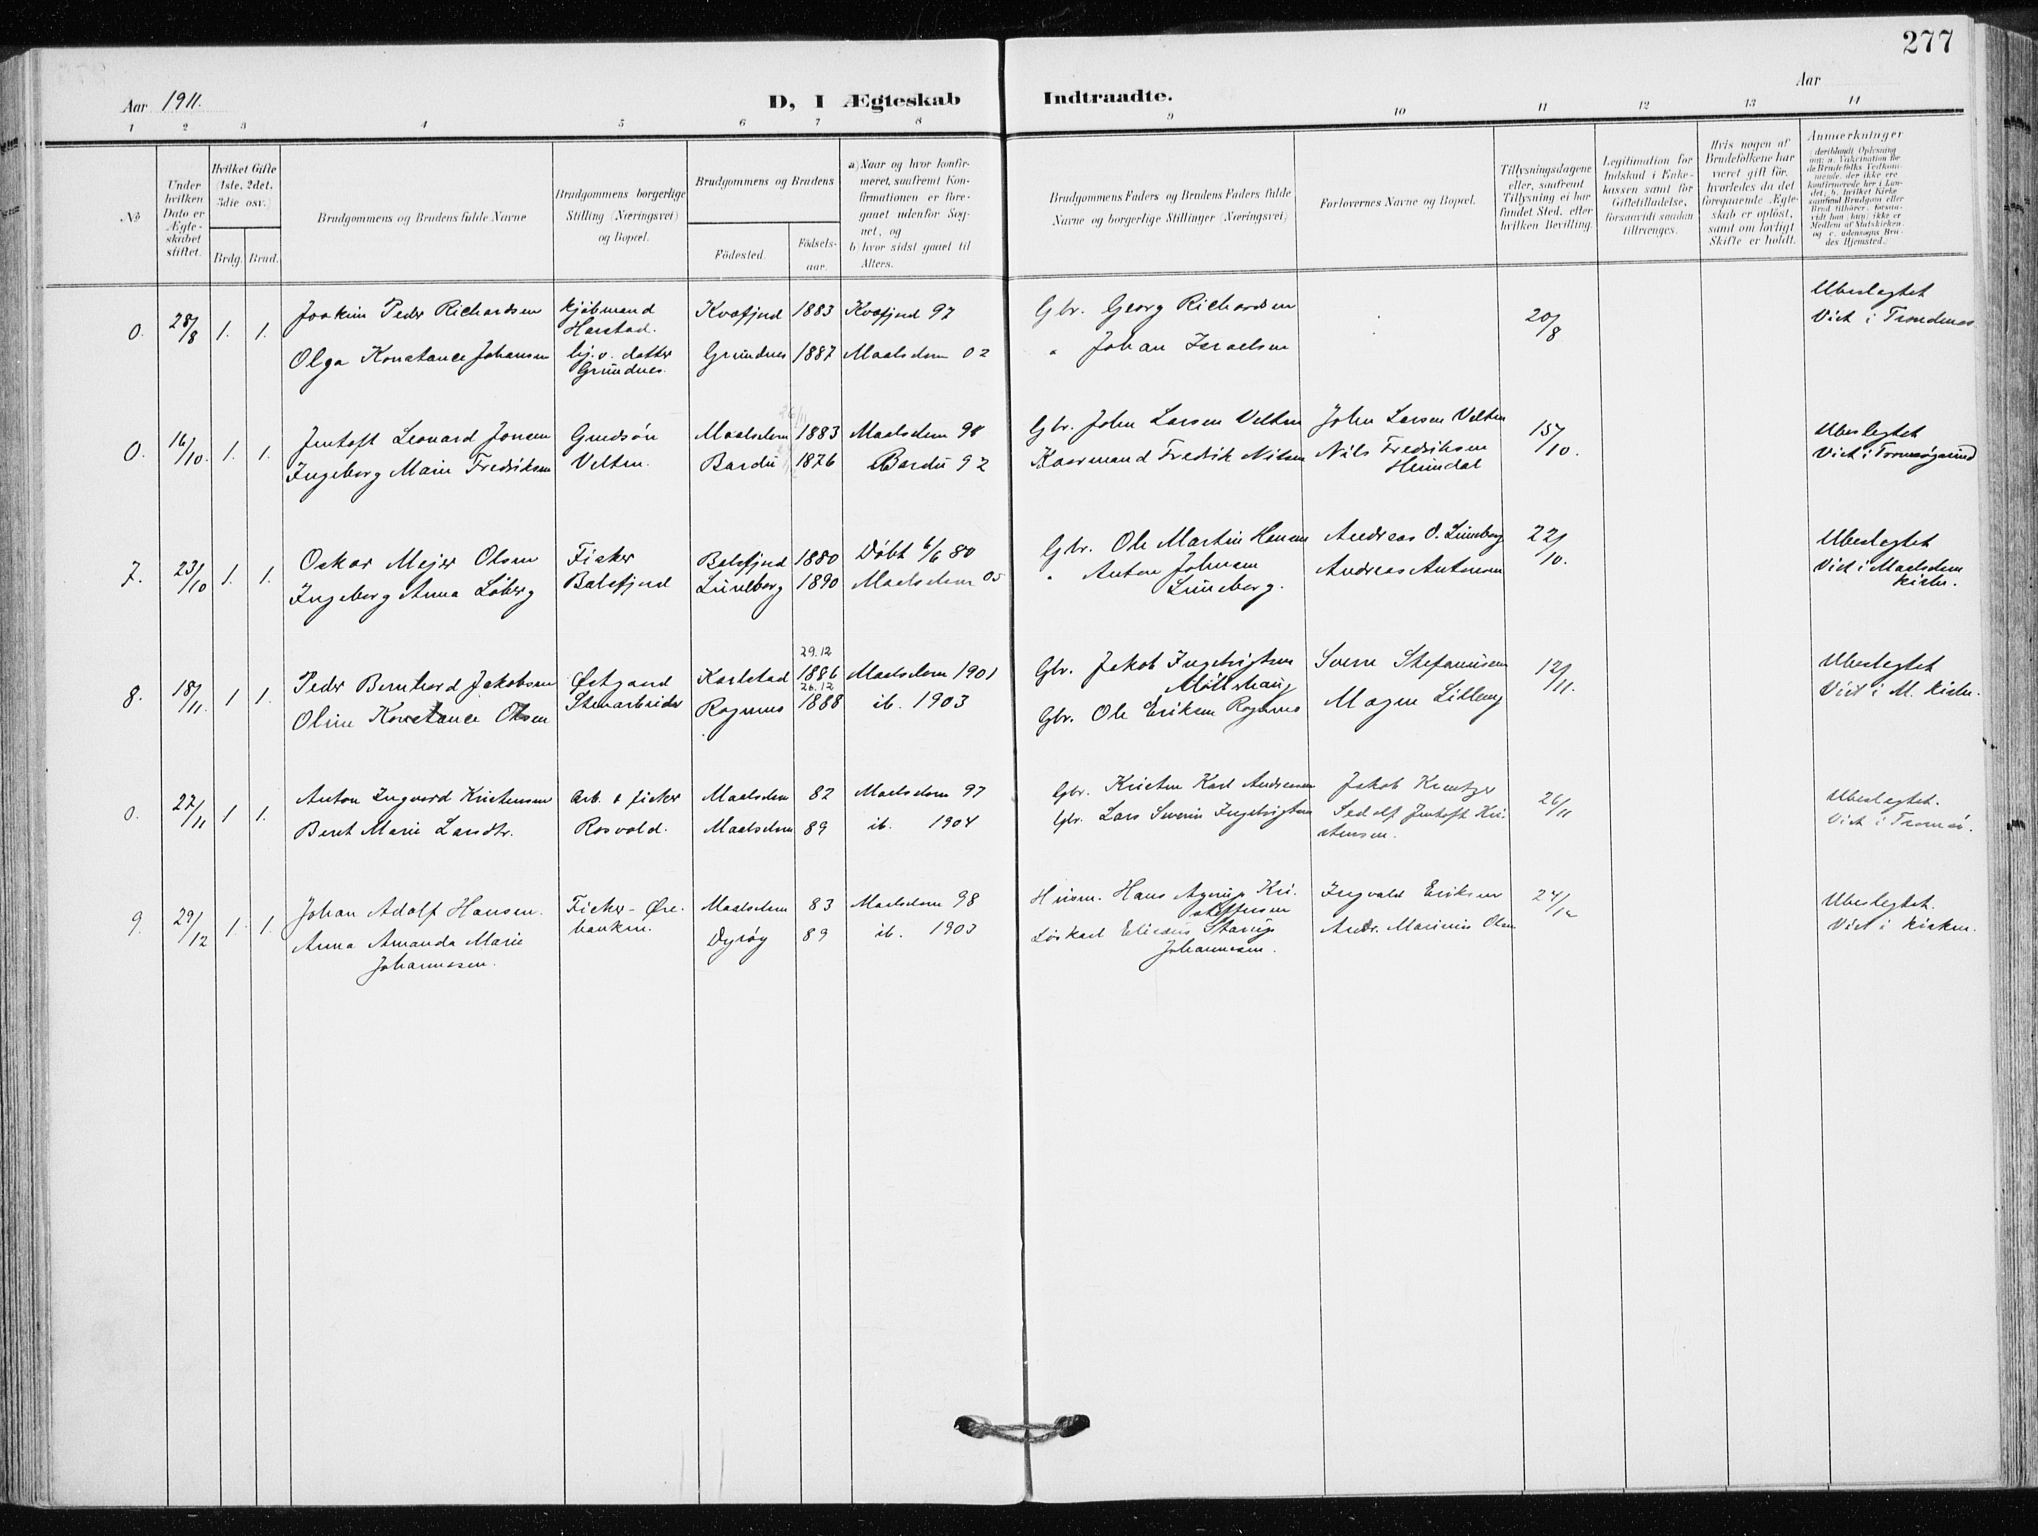 277
Aar 1911.
D, I Ægteskab Indtraadte.
Aar
1 2 3 4 5 6 7 8 9 10 11 12 13 14
No
Under hvilken Dato er Ægteskabet stiftet.
Hvilket Gifte (1ste, 2det, 3die osv.)
Brdg. Brud.
Brudgommens og Brudens fulde Navne
Brudgommens borgerlige Stilling (Næringsvei) og Bopæl.
Brudgommens og Brudens
Födested.
Födsels-aar.
a) Naar og hvor konfirmeret, saafremt Konfirmationen er foregaaet udenfor Sognet, og
b) hvor sidst gaaet til Alters.
Brudgommens Faders og Brudens Faders fulde Navne og borgerlige Stillinger (Næringsvei)
Forlovernes Navne og Bopæl.
Tillysningsdagene eller, saafremt Tillysning ei har fundet Sted, efter hvilken Bevilling.
Legitimation for Indskud i Enkekassen samt for Giftetilladelse, forsaavidt saadan tiltrænges.
Hvis nogen af Brudefolkene har været gift før, hvorledes da det foregaaende Ægteskab er opløst, samt om lovligt Skifte er holdt.
Anmerkninger
0. 28/8 1. 1. Joakim Peder Richardsen kjöbmand Harstad. Kvæfjord 1883 Kvæfjord 97 Gbr. Georg Richardsen 20/8 Ubeslegtet Viet i Trondenæs
Olga Konstance Johansen hj.v. datter Grundnes. Grundnes 1887 Maalselven 02 " Johan Israelsen
0. 16/10. 1. 1. Jentoft Leonard Jonsen Gaardsön Maalselven 1883 Maalselven 98 Gbr. John Larsen Velten John Larsen Velten 15/10. Ubeslegtet Viet i Tromsøsund
Ingeborg Marie Fredriksen Velten. Bardu 1876 Bardu 92 Kaarmand Fredrik Nilsen Nils Fredriksen Heimdal
7. 23/10 1. 1. Oskar Mejer Olsen Fisker Balsfjord 1880 Döbt 6/6 80 Gbr. Ole Martin Hansen Andreas O. Luneborg 22/10. Ubeslegtet Viet i Maalselven kirke.
Ingeborg Anna Löberg Balsfjord Luneborg 1890 Maalselven 05 " Anton Johnsen Luneborg. Andreas Antonsen
8. 18/11. 1 1. Peder Bernhard Jakobsen Østgaard Karlstad 29.12 1886 Maalselven 1901 Gbr. Jakob Ingebrigtsen Möllerhaug Sverre Stefanussen 12/11. Ubeslegtet Viet i M. kirke.
Oline Konstance Olsen Stenarbeider Rognmo 26.12 1888 ib. 1903 Gbr. Ole Eriksen Rognmo Magne Lilleng
0. 27/11 1 1. Anton Ingvard Kristensen Arb. & fisker Maalselven 82 Maalselven 97 Gbr. Kristen Karl Andreassen Jakob Krentzer 26/11 Ubeslegtet. Viet i Tromsö.
Berit Marie Larsdtr. Rosvold. Maalselven 89 ib. 1904 Gbr. Lars Severin Ingebrigtsen Sedolf Jentoft Kristensen.
9. 29/12 1. 1. Johan Adolf Hansen. Fisker - Ørebanken. Maalselven 83 Maalselven 98 Husm. Hans Agerup Kristoffersen Ingvald Eriksen 24/12 Ubeslegtet. Viet i kirken.
Anna Amanda Marie Johannesen. Dyröy 89 ib. 1903 Löskarl Johannesen. Andr. Marinius Olsen